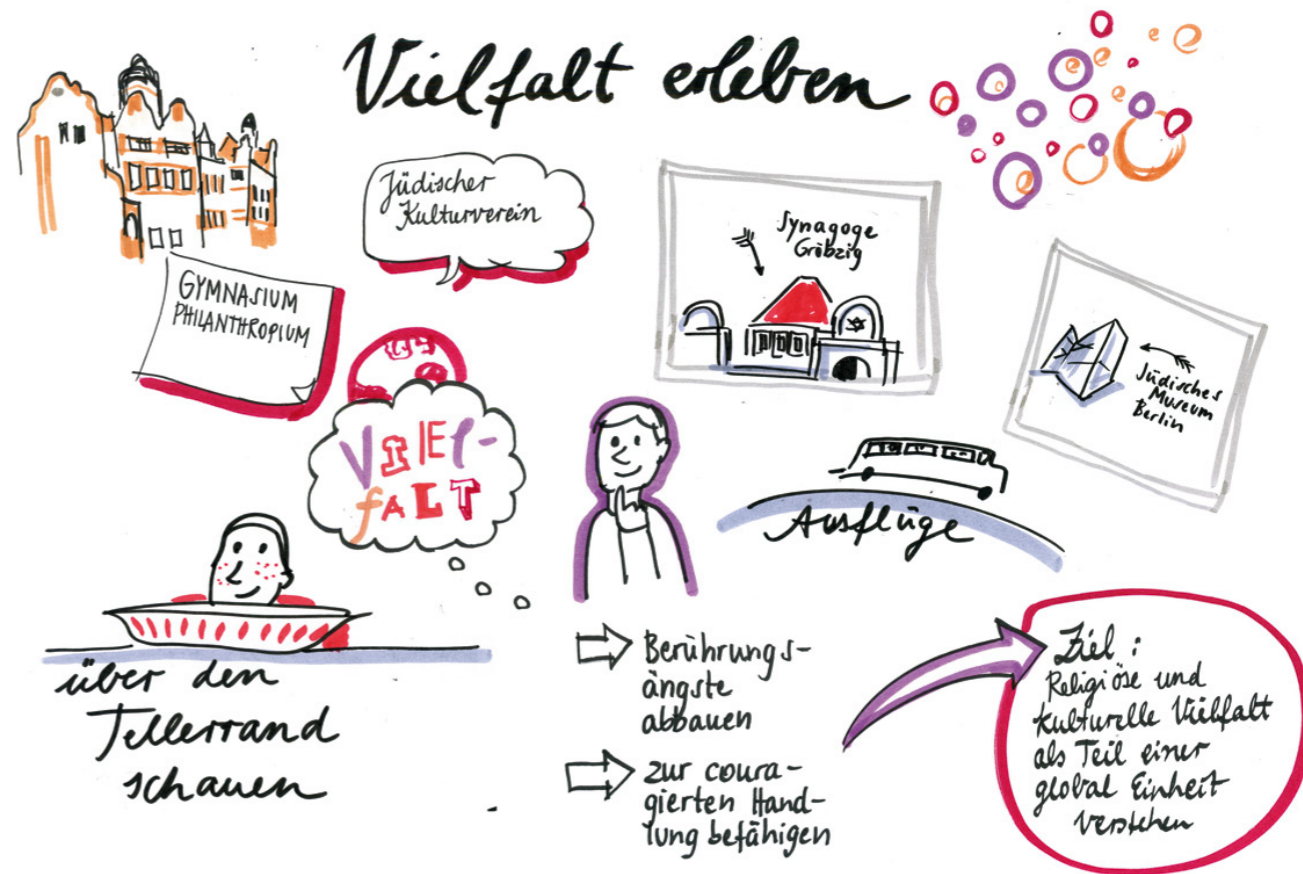 Vielfalt erleben
Jüdischer
Kulturverein
Synagoge
Gröbzig
GYMNASIUM
PHILANTHROPIUM
Jüdisches
Museum
Berlin
VIEL-
FALT
Ausflüge
über den
Tellerrand
schauen
Berührungs-
ängste
abbauen
zur coura-
gierten Hand-
lung befähigen
Ziel:
Religiöse und
kulturelle Vielfalt
als Teil einer
global Einheit
verstehen